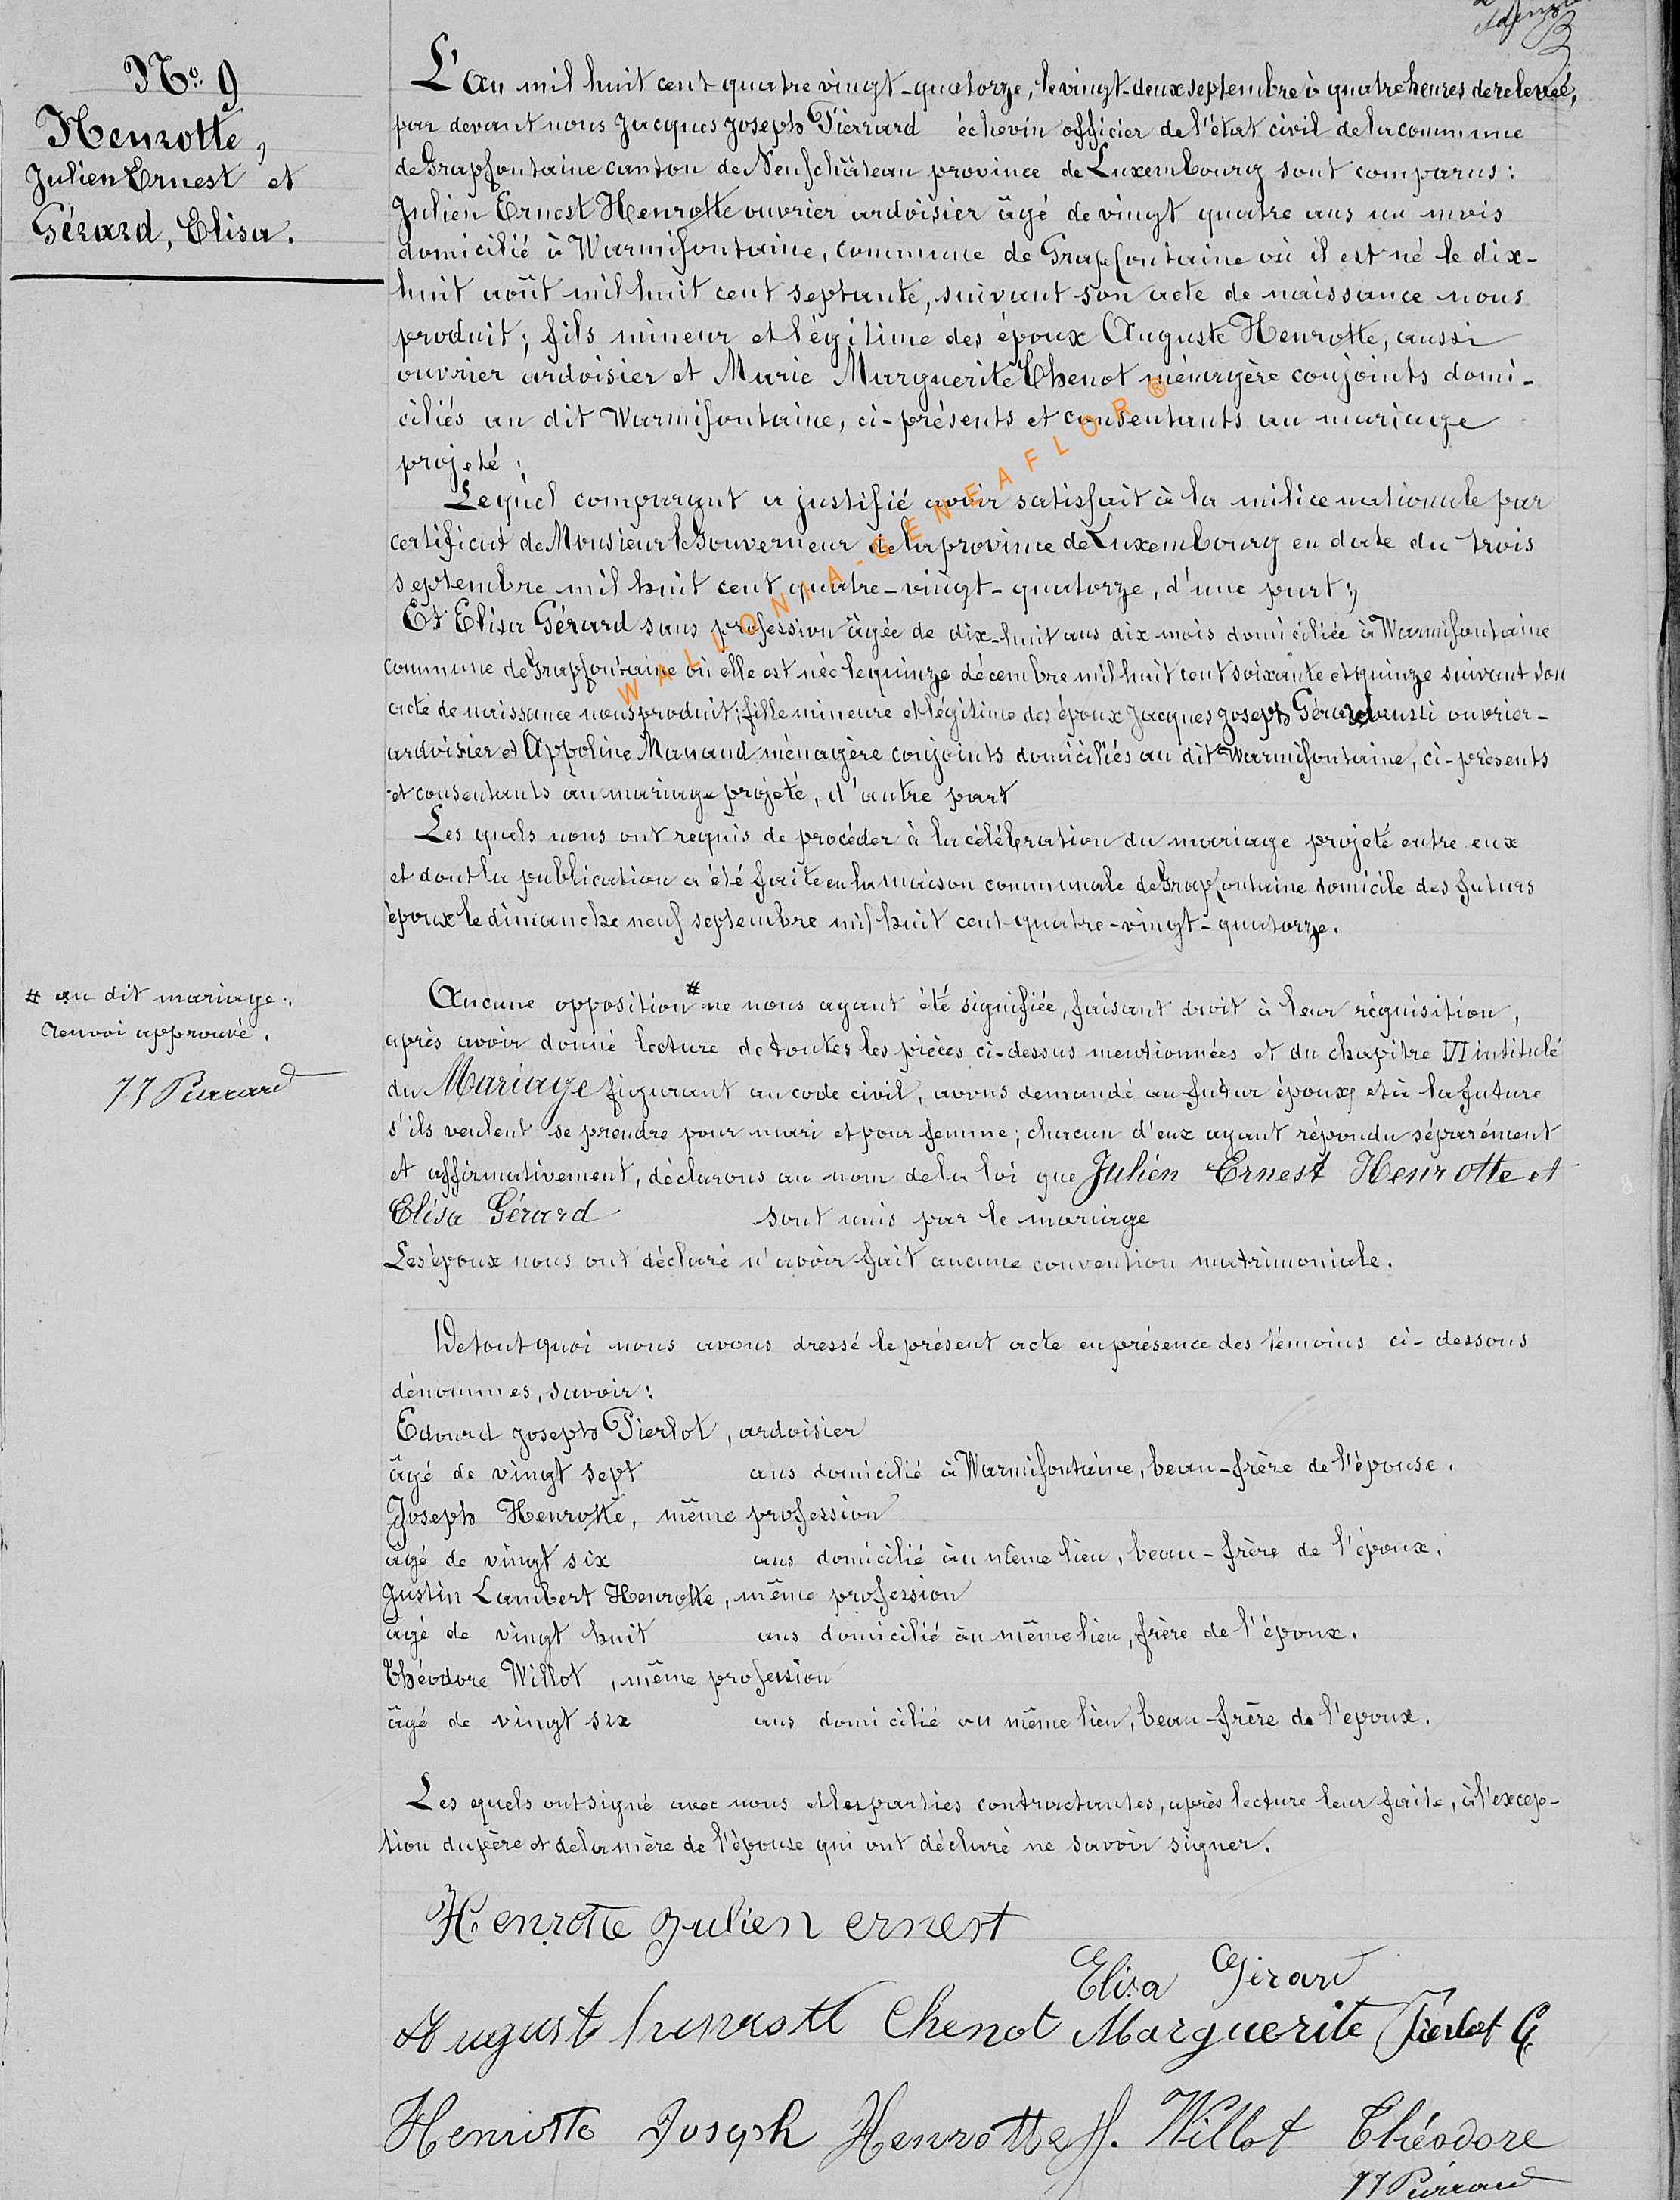 No. 9
Henrotte,
Julien Ernest et
Gérard, Elisa.
L'an mil huit cent quatre vingt-quatorze, le vingt-deux septembre à quatre heures de relevée,
par devant nous Jacques Joseph Pierrard échevin officier de l'état civil de la commune
de Grapfontaine canton de Neufchâteau province de Luxembourg sont comparus:
Julien Ernest Henrotte ouvrier ardoisier âgé de vingt quatre ans un mois
domicilié à Warmifontaine, commune de Grapfontaine où il est né le dix-
huit août mil huit cent septante, suivant son acte de naissance nous
produit; fils mineur et légitime des époux Auguste Henrotte, aussi
ouvrier ardoisier et Marie Marguerite Chenot ménagère conjoints domi-
ciliés au dit Warmifontaine, ci-présents et consentants au mariage
projeté;
Lequel comparant a justifié avoir satisfait à la milice nationale par
certificat de Monsieur le Gouverneur de la province de Luxembourg en date du trois
septembre mil huit cent quatre-vingt-quatorze, d'une part;
Et Elisa Gérard sans profession âgée de dix-huit ans dix mois domiciliée à Warmifontaine
commune de Grapfontaine où elle est née le quinze décembre mil huit cent soixante et quinze suivant son
acte de naissance nous produit; fille mineure et légitime des époux Jacques Joseph Gérard aussi ouvrier-
ardoisier et Appoline Manand ménagère conjoints domiciliés au dit Warmifontaine, ci-présents
et consentants au mariage projeté, d'autre part
Les quels nous ont requis de procéder à la célébration du mariage projeté entre eux
et dont la publication a été faite en la maison communale de Grapfontaine domicile des futurs
époux le dimanche neuf septembre mil huit cent quatre-vingt-quatorze.
Aucune opposition # ne nous ayant été signifiée, faisant droit à leur réquisition,
après avoir donné lecture de toutes les pièces ci-dessus mentionnées et du chapitre VI intitulé
du Mariage figurant au code civil, avons demandé au futur époux et à la future
s'ils veulent se prendre pour mari et pour femme; chacun d'eux ayant répondu séparément
et affirmativement, déclarons au nom de la loi que Julien Ernest Henrotte et
Elisa Gérard sont unis par le mariage
Les époux nous ont déclaré n'avoir fait aucune convention matrimoniale.
# au dit mariage.
Renvoi approuvé.
JJ Pierrard
De tout quoi nous avons dressé le présent acte en présence des témoins ci-dessous
dénommés, savoir:
Edouard Joseph Pierlot, ardoisier
âgé de vingt sept ans domicilié à Warmifontaine, beau-frère de l'épouse.
Joseph Henrotte, même profession
âgé de vingt six ans domicilié au même lieu, beau-frère de l'époux.
Justin Lambert Henrotte, même profession
âgé de vingt huit ans domicilié au même lieu, frère de l'époux.
Théodore Willot, même profession
âgé de vingt six ans domicilié au même lieu, beau-frère de l'époux.
Les quels ont signé avec nous et les parties contractantes, après lecture leur faite, à l'excep-
tion du père et de la mère de l'épouse qui ont déclaré ne savoir signer.
Henrotte Julien ernest
Elisa Gérard
August henrott Chenot Marguerite Pierlot
Henrotte Joseph Henrotte J. Willot Théodore
JJ Pierrard
WALLONIA-GENEAFLOR ®